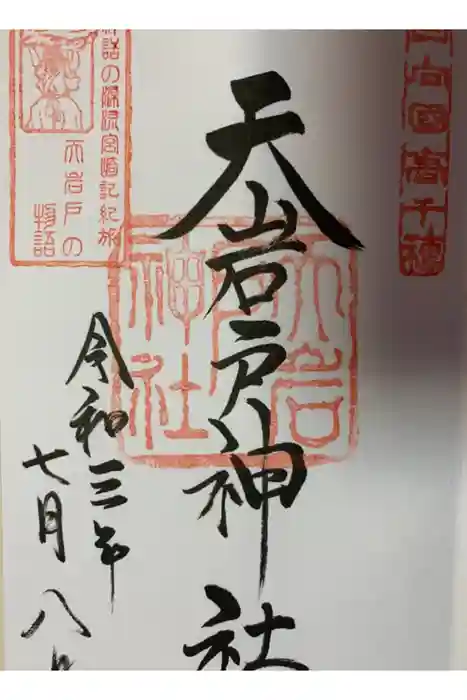 日向国高千穂
天岩戸神社
天岩戸神社
神話の源流宮崎記紀旅
天岩戸の
物語
令和三年
七月八日